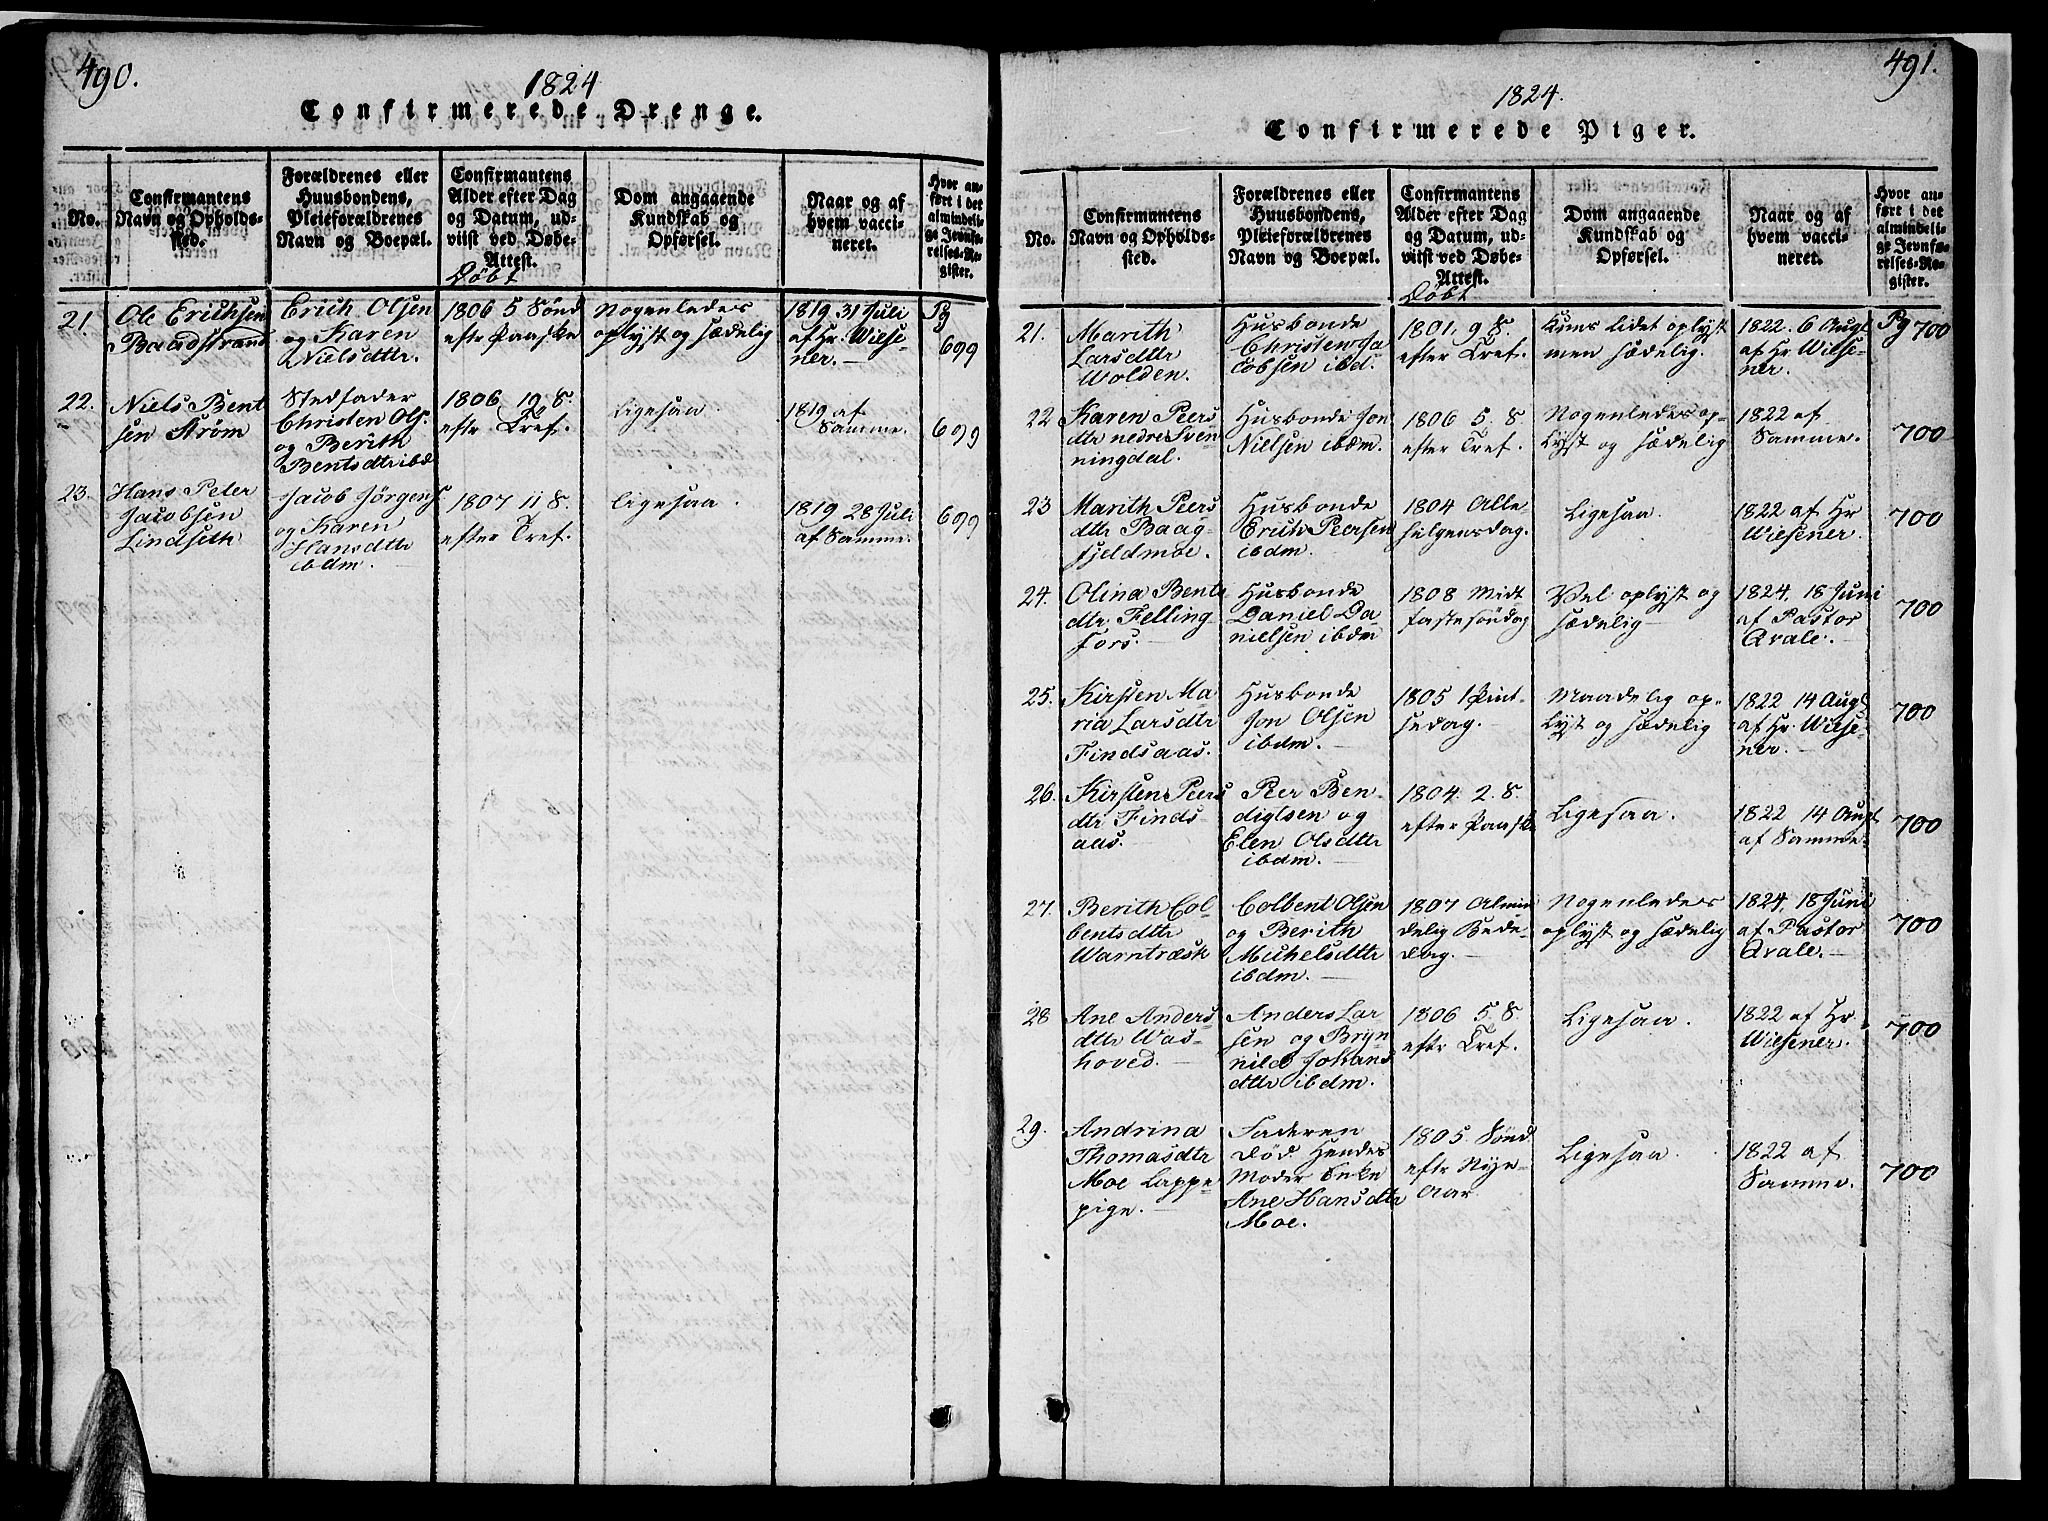 490.
1824
Confirmerede Drenge.
No.
Confirmantens
Navn og Opholds-
sted.
Forældrenes eller
Huusbondens,
Pleieforældrenes
Navn og Boepæl.
Confirmantens
Alder efter Dag
og Datum, ud-
viist ved Døbe-
Attest.
Døbt
Dom angaaende
Kundskab og
Opførsel.
Naar og af
hvem vacci-
neret.
Hvor an-
ført i det
almindeli-
ge Jevnfø-
relses-Re-
gister.
21.
Ole Erichsen
Baadstrand
Erich Olsen
og Karen
Nielsdtr.
1806 5 Sønd
eftr Paaske
Nogenledes
oplyst og sædelig
1819 31 Juli
af Hr. Wilse-
ner. —
Pg
699
22.
Niels Bent
sen Strøm
Stedfader
Christen Ols.
og Berith
Bentsdtr ibd
1806 19. S.
eftr Tref.
Ligesaa.
1819 af
Samme.
699
23.
Hans Peter
Jacobsen
Lindseth
Jacob Jörgens.
og Karen
Hansdtr
ibdm.
1807 11 S.
efter Tref.
Ligesaa.
1819 28 Juli
af Samme.
699
491.
1824.
Confirmerede Piger.
No.
Confirmantens
Navn og Opholds-
sted.
Forældrenes eller
Huusbondens,
Pleieforældrenes
Navn og Boepæl.
Confirmantens
Alder efter Dag
og Datum, ud-
viist ved Døbe-
Attest.
Døbt
Dom angaaende
Kundskab og
Opførsel.
Naar og af
hvem vacci-
neret.
Hvor an-
ført i det
almindeli-
ge Jevnfø-
relses-Re-
gister.
21.
Marith
Larsdtr
Wolden.
Husbonde
Christen Ja
cobsen ibd.
1801. 9 S.
efter Tref.
Kuns lidet oplyst
men sædelig.
1822. 6 Augt
af Hr Wilse-
ner.
Pg 700
22
Karen Peers
dtr nedre Sven
ningdal.
Husbonde Jon
Nielsen ibdm.
1806 5. S.
efter Tref.
Nogenledes op-
lyst og sædelig
1822 af
Samme.
700
23
Marith Peers
dtr Baag-
fjeldmoe.
Husbonde
Erich Peersen
ibdm.
1804 Alle
helgensdag.
Ligesaa.
1822 af Hr
Wilsener.
700
24.
Olina Bents
dtr Felling
fors.
Husbonde
Daniel Da
nielsen ibdm
1808 Midt
fastesöndag
Vel oplyst og
sædelig
1824. 18 Juni
af Pastor
Qvale.
700
25.
Kirsten Ma
ria Larsdtr
Findsaas.
Husbonde
Jon Olsen
ibdm.
1805 1 Pint-
sedag.
Maadelig op-
lyst og sædelig
1822 14 Augt
af Hr. Wilse-
ner.
700
26.
Kirsten Peers
dtr Finds-
aas.
Peer Ben-
digtsen og
Elen Olsdtr
ibdm.
1804. 2. S.
efter Paaske
Ligesaa.
1822 14 Augt
af Samme.
700
27.
Berith Col-
bentsdtr
Warntræsk
Colbent Olsen
og Berith
Michelsdtr
ibdm.
1807 Almin
delig Bede-
dag.
Nogenledes
oplyst og sædelig
1824. 18 Juni
af Pastor
Qvale.
700
28
Ane Anders-
dtr Was-
hoved.
Anders Lar
sen og Bryn
nild Johans
dtr ibdm.
1806 5. S.
eftr Tref.
Ligesaa.
1822 af Hr
Wilsener.
700
29.
Andrina
Thomasdtr
Moe Lappe-
pige.
Faderen
död Hendes
Moder Enke
Ane Hansdtr
Moe.
1805. Sönd.
eftr Nye-
Aar.
Ligesaa.
1822 af
Samme.
700